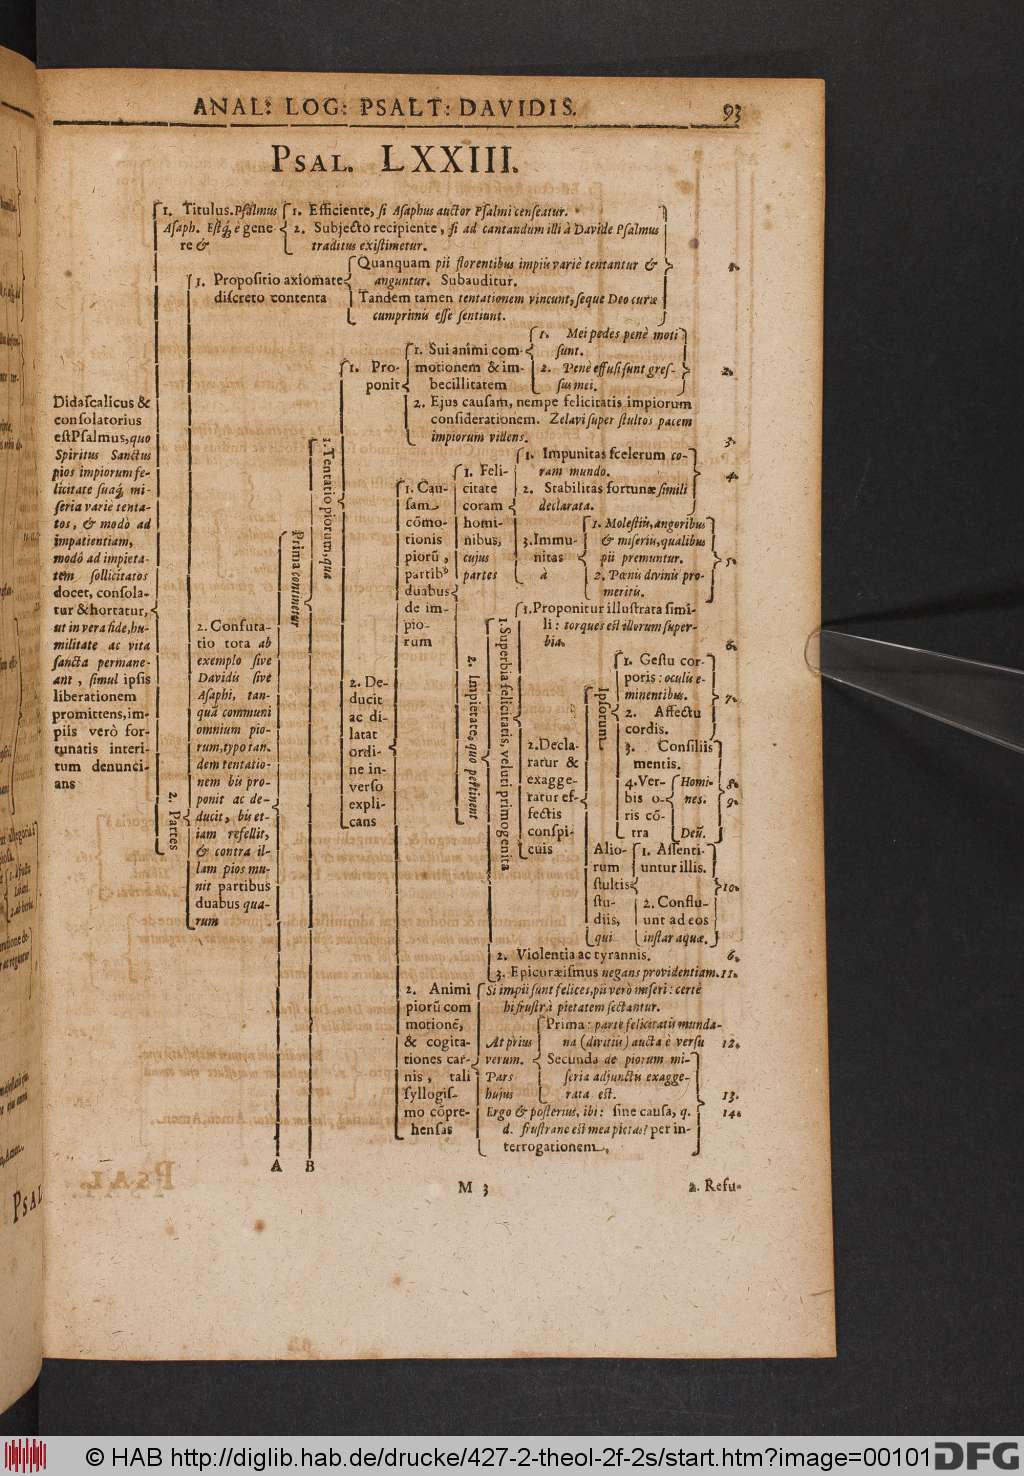 ANAL: LOG: PSALT: DAVIDIS. 93
PSAL. LXXIII.
Didascalicus &
consolatorius
est Psalmus, quo
Spiritus Sanctus
pios impiorum fe-
licitate suaq́; mi-
seria varie tenta-
tos, & modò ad
impatientiam,
modò ad impieta-
tem sollicitatos
docet, consola-
tur & hortatur,
ut in vera fide, hu-
militate ac vita
sancta permane-
ant, simul ipsis
liberationem
promittens, im-
piis verò for-
tunatis interi-
tum denunci-
ans
1. Titulus. Psalmus
Asaph. Estq́; è gene
re &
1. Efficiente, si Asaphus auctor Psalmi censeatur.
2. Subjecto recipiente, si ad cantandum illi à Davide Psalmus
traditus existimetur.
2. Partes
1. Propositio axiomate
discreto contenta
Quanquam pii florentibus impiis variè tentantur &
anguntur. Subauditur.
Tandem tamen tentationem vincunt, seque Deo curæ
cumprimis esse sentiunt.
1.
2. Consuta-
tio tota ab
exemplo sive
Davidis sive
Asaphi, tan-
quã communi
omnium pio-
rum, typo tan.
dem tentatio-
nem bis pro-
ponit ac de-
ducit, bis et-
iam refellit,
& contra il-
lam pios mu-
nit partibus
duabus qua-
rum
Prima continetur
1. Tentatio piorum, quæ
1. Pro-
ponit
1. Sui animi com-
motionem & im-
becillitatem
1. Mei pedes penè moti
sunt.
2. Penè effusi sunt gres-
sus mei.
2.
2. Ejus causam, nempe felicitatis impiorum
considerationem. Zelavi super stultos pacem
impiorum videns.
3.
2. De-
ducit
ac di-
latat
ordi-
ne in-
verso
expli-
cans
1. Cau-
sam
cõmo-
tionis
piorũ,
partibꝰ
duabus
de im-
pio-
rum
1. Feli-
citate
coram
homi-
nibus,
cujus
partes
1. Impunitas scelerum co-
ram mundo.
2. Stabilitas fortunæ simili
declarata.
4.
3. Immu-
nitas
à
1. Molestiis, angoribus
& miseriis, qualibus
pii premuntur.
2. Pœnis divinis pro-
meritis.
5.
2. Impietate, quo pertinent
1. Superbia felicitatis, veluti primogenita
1. Proponitur illustrata simi-
li: torques est illorum super-
bia.
6.
2. Decla-
ratur &
exagge-
ratur ef-
fectis
conspi-
cuis
Ipsorum
1. Gestu cor-
poris: oculis e-
minentibus.
7.
2. Affectu
cordis.
3. Consiliis
mentis.
8.
4. Ver-
bis o-
ris cõ-
tra
Homi-
nes.
9.
Deũ.
Alio-
rum
stultis
stu-
diis,
qui
1. Assenti-
untur illis.
10.
2. Conflu-
unt ad eos
instar aquæ.
2. Violentia ac tyrannis. 6.
3. Epicuræismus negans providentiam. 11.
2. Animi
piorũ com
motionẽ,
& cogita-
tiones car-
nis, tali
syllogis-
mo cõpre-
hensas
Si impii sunt felices, pii verò miseri: certè
hi frustrà pietatem sectantur.
At prius
verum.
Pars
hujus
Prima: parte felicitatis munda-
na (divitiis) aucta è versu 12.
Secunda de piorum mi-
seria adjunctis exagge-
rata est. 13.
Ergo & posterius, ibi: sine causa, q. 14.
d. frustrane est mea pietas? per in-
terrogationem.
A B
M 3
2. Refu-
PSAL
© HAB http://diglib.hab.de/drucke/427-2-theol-2f-2s/start.htm?image=00101
DFG